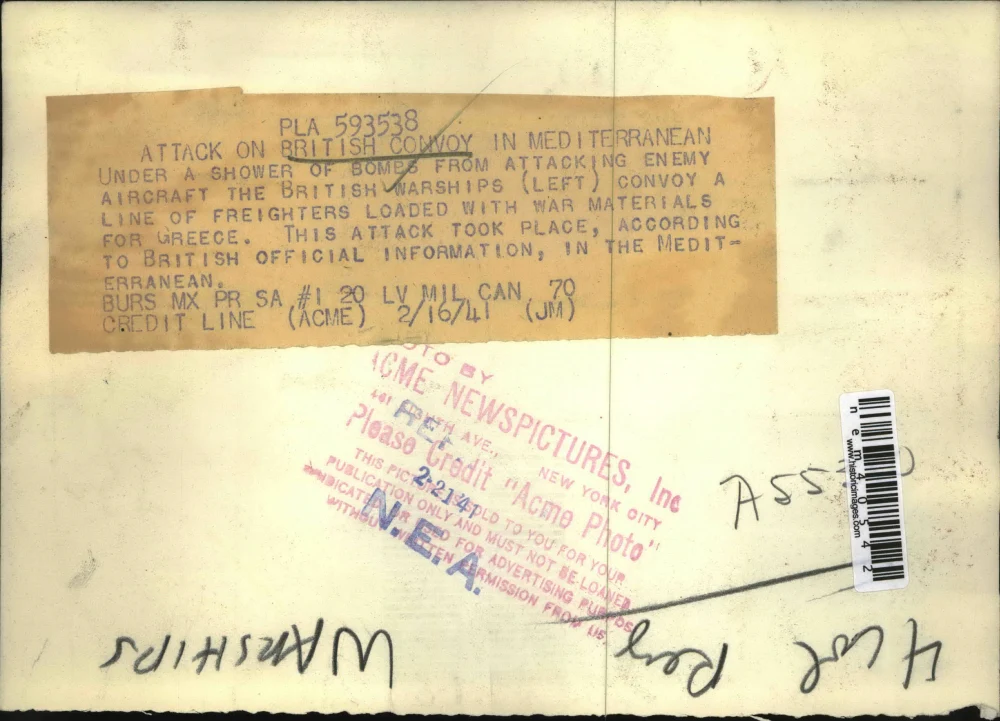 PLA 593538
ATTACK ON BRITISH CONVOY IN MEDITERRANEAN
UNDER A SHOWER OF BOMBS FROM ATTACKING ENEMY
AIRCRAFT THE BRITISH WARSHIPS (LEFT) CONVOY A
LINE OF FREIGHTERS LOADED WITH WAR MATERIALS
FOR GREECE. THIS ATTACK TOOK PLACE, ACCORDING
TO BRITISH OFFICIAL INFORMATION, IN THE MEDIT=
ERRANEAN.
BURS MX PR SA #1 20 LV MIL CAN 70
CREDIT LINE (ACME) 2/16/41 (JM)
BY
ACME NEWSPICTURES, Inc
AVE., NEW YORK CITY
Please Credit "Acme Photo"
THIS PICTURE IS SOLD TO YOU FOR YOUR
PUBLICATION ONLY AND MUST NOT BE LOANED
FOR ADVERTISING
WITHOUT WRITTEN PERMISSION FROM US.
REF.
2-21-41
N.E.A.
nem40542
www.historicimages.com
WARSHIPS
4 col